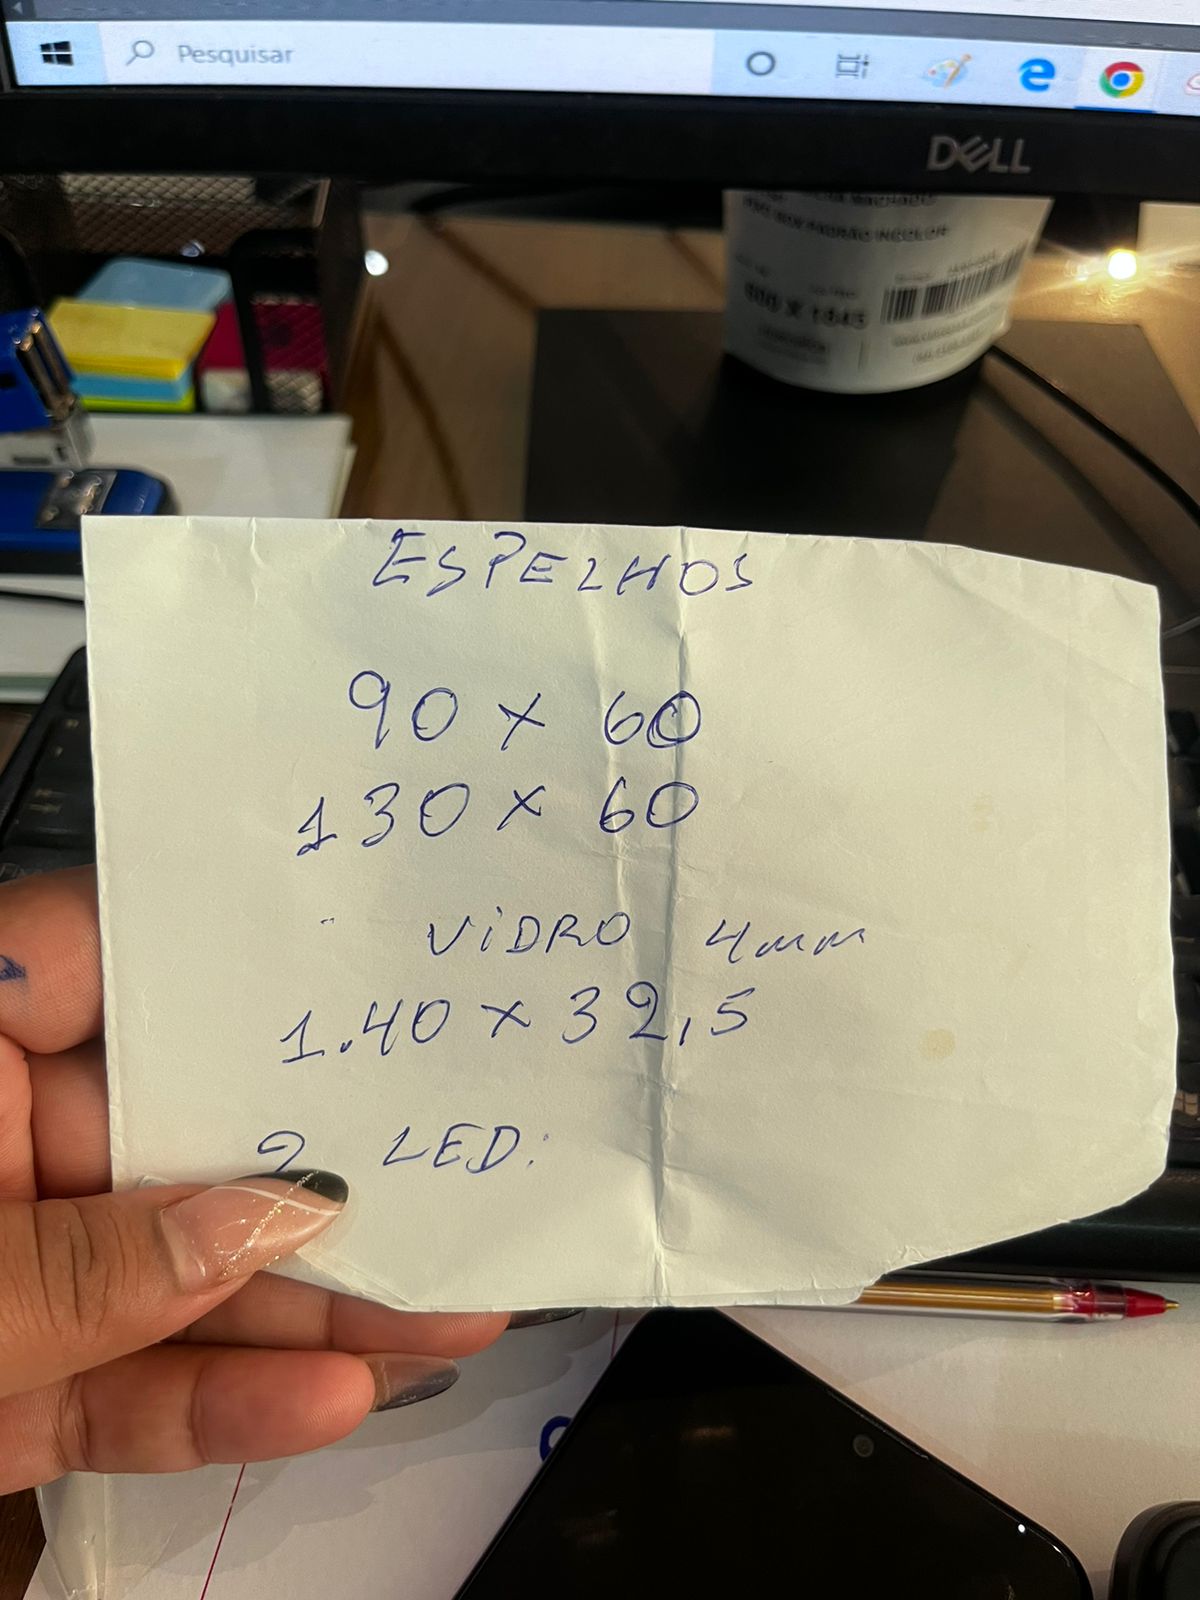 Pesquisar
DELL
PADRÃO INCOLOR
ESPELHOS
90 x 60
130 x 60
VIDRO 4mm
1.40 x 32,5
2 LED: